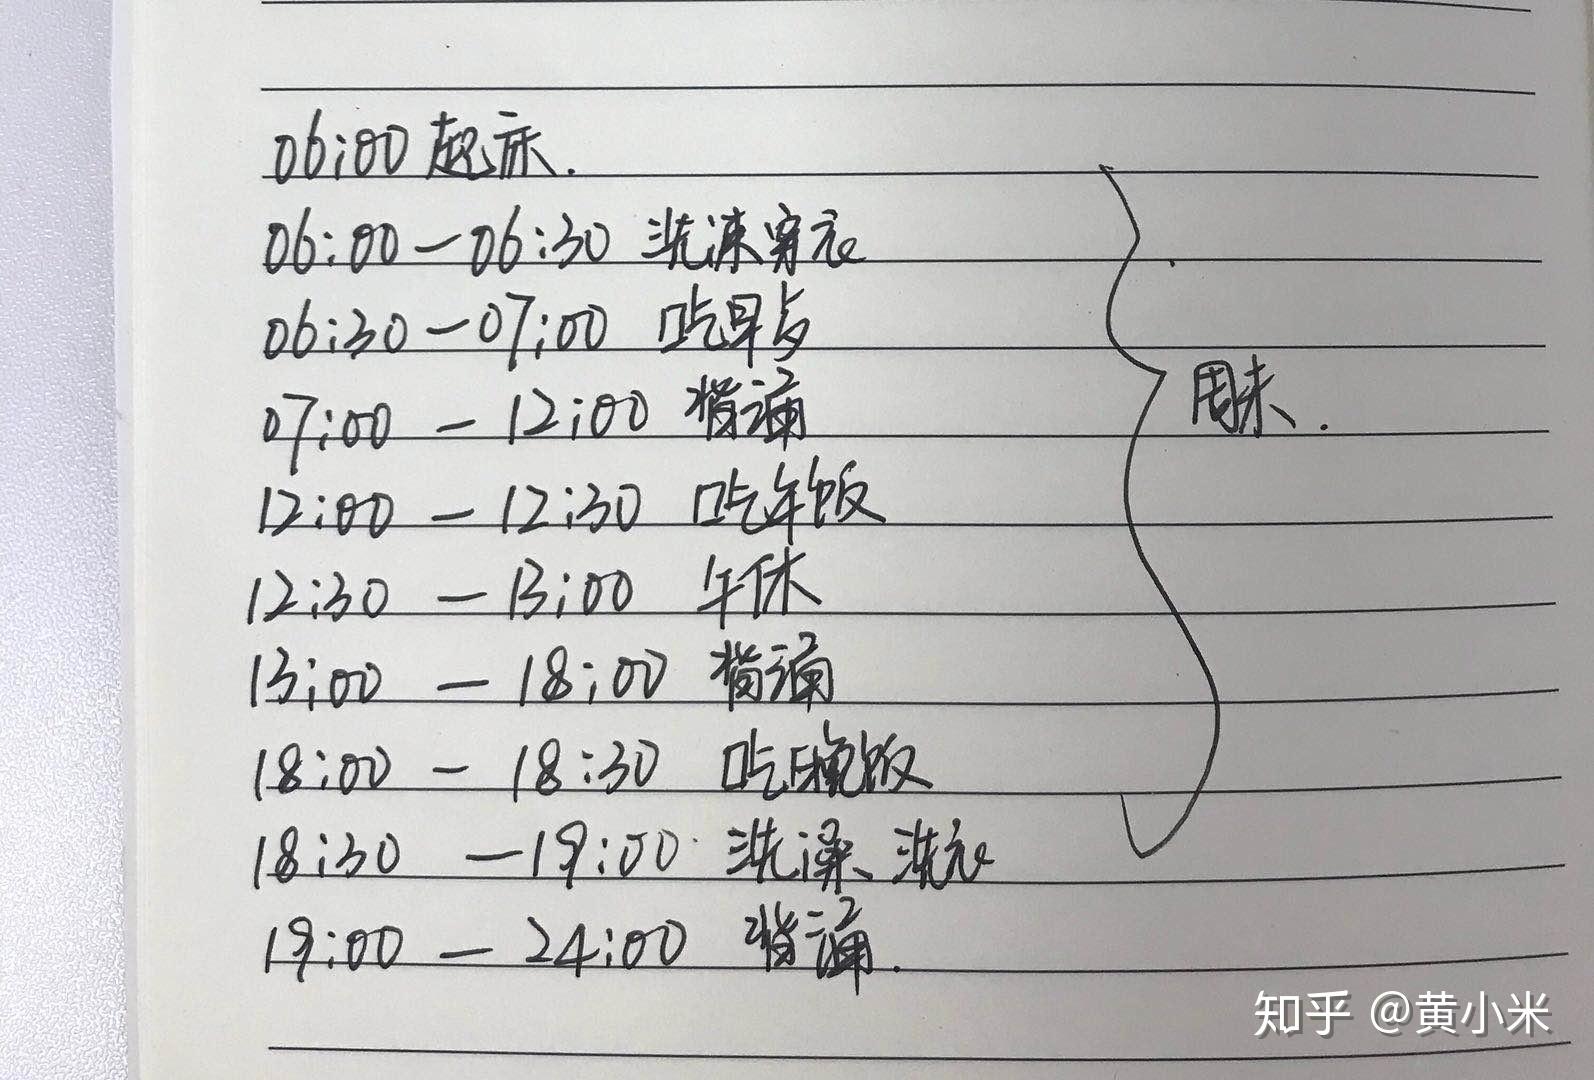 06:00 起床.
06:00—06:30 洗漱穿衣
06:30—07:00 吃早歺
07:00 — 12:00 背诵
12:00 — 12:30 吃午饭
12:30 — 13:00 午休
13:00 — 18:00 背诵
18:00 — 18:30 吃晚饭
18:30 —19:00 洗澡、洗衣
19:00 — 24:00 背诵.
周末.
知乎 @黄小米